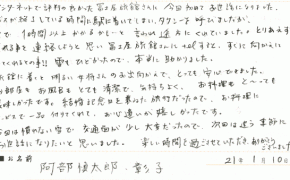 ンターネットで評判の良かった富士屋旅館さん 今回初めてお世話になりました。
が超している時間に駅に着いてしまい、タクシーは呼びましたが、
で、1時間以上かかるかも… と 言われ途方にくれていました。とりあえず
る事を連絡しようと思い富士屋旅館さんにtelすると、すぐに向かえに
くるとの事!! 雪もひどかったので、本当に助かりました。
旅館に着くと明るい女将さんのお出向かえで、とっても安心できました。
お部屋もお風呂もとても清潔で、気持ちよく、お料理もとーっても
美味しかったです。結婚記念日を兼ねた旅行だったので、お料理に
一品付けてくれて、お心遣いが嬉しかったです。
今回は慣れない雪で交通面が少し大変だったので、次回は違う季節に
お世話になりたいと思いました。楽しい時間を過ごさせていただき、ありがとうございました
お名前 阿部慎太郎・彰子 21年1月10日